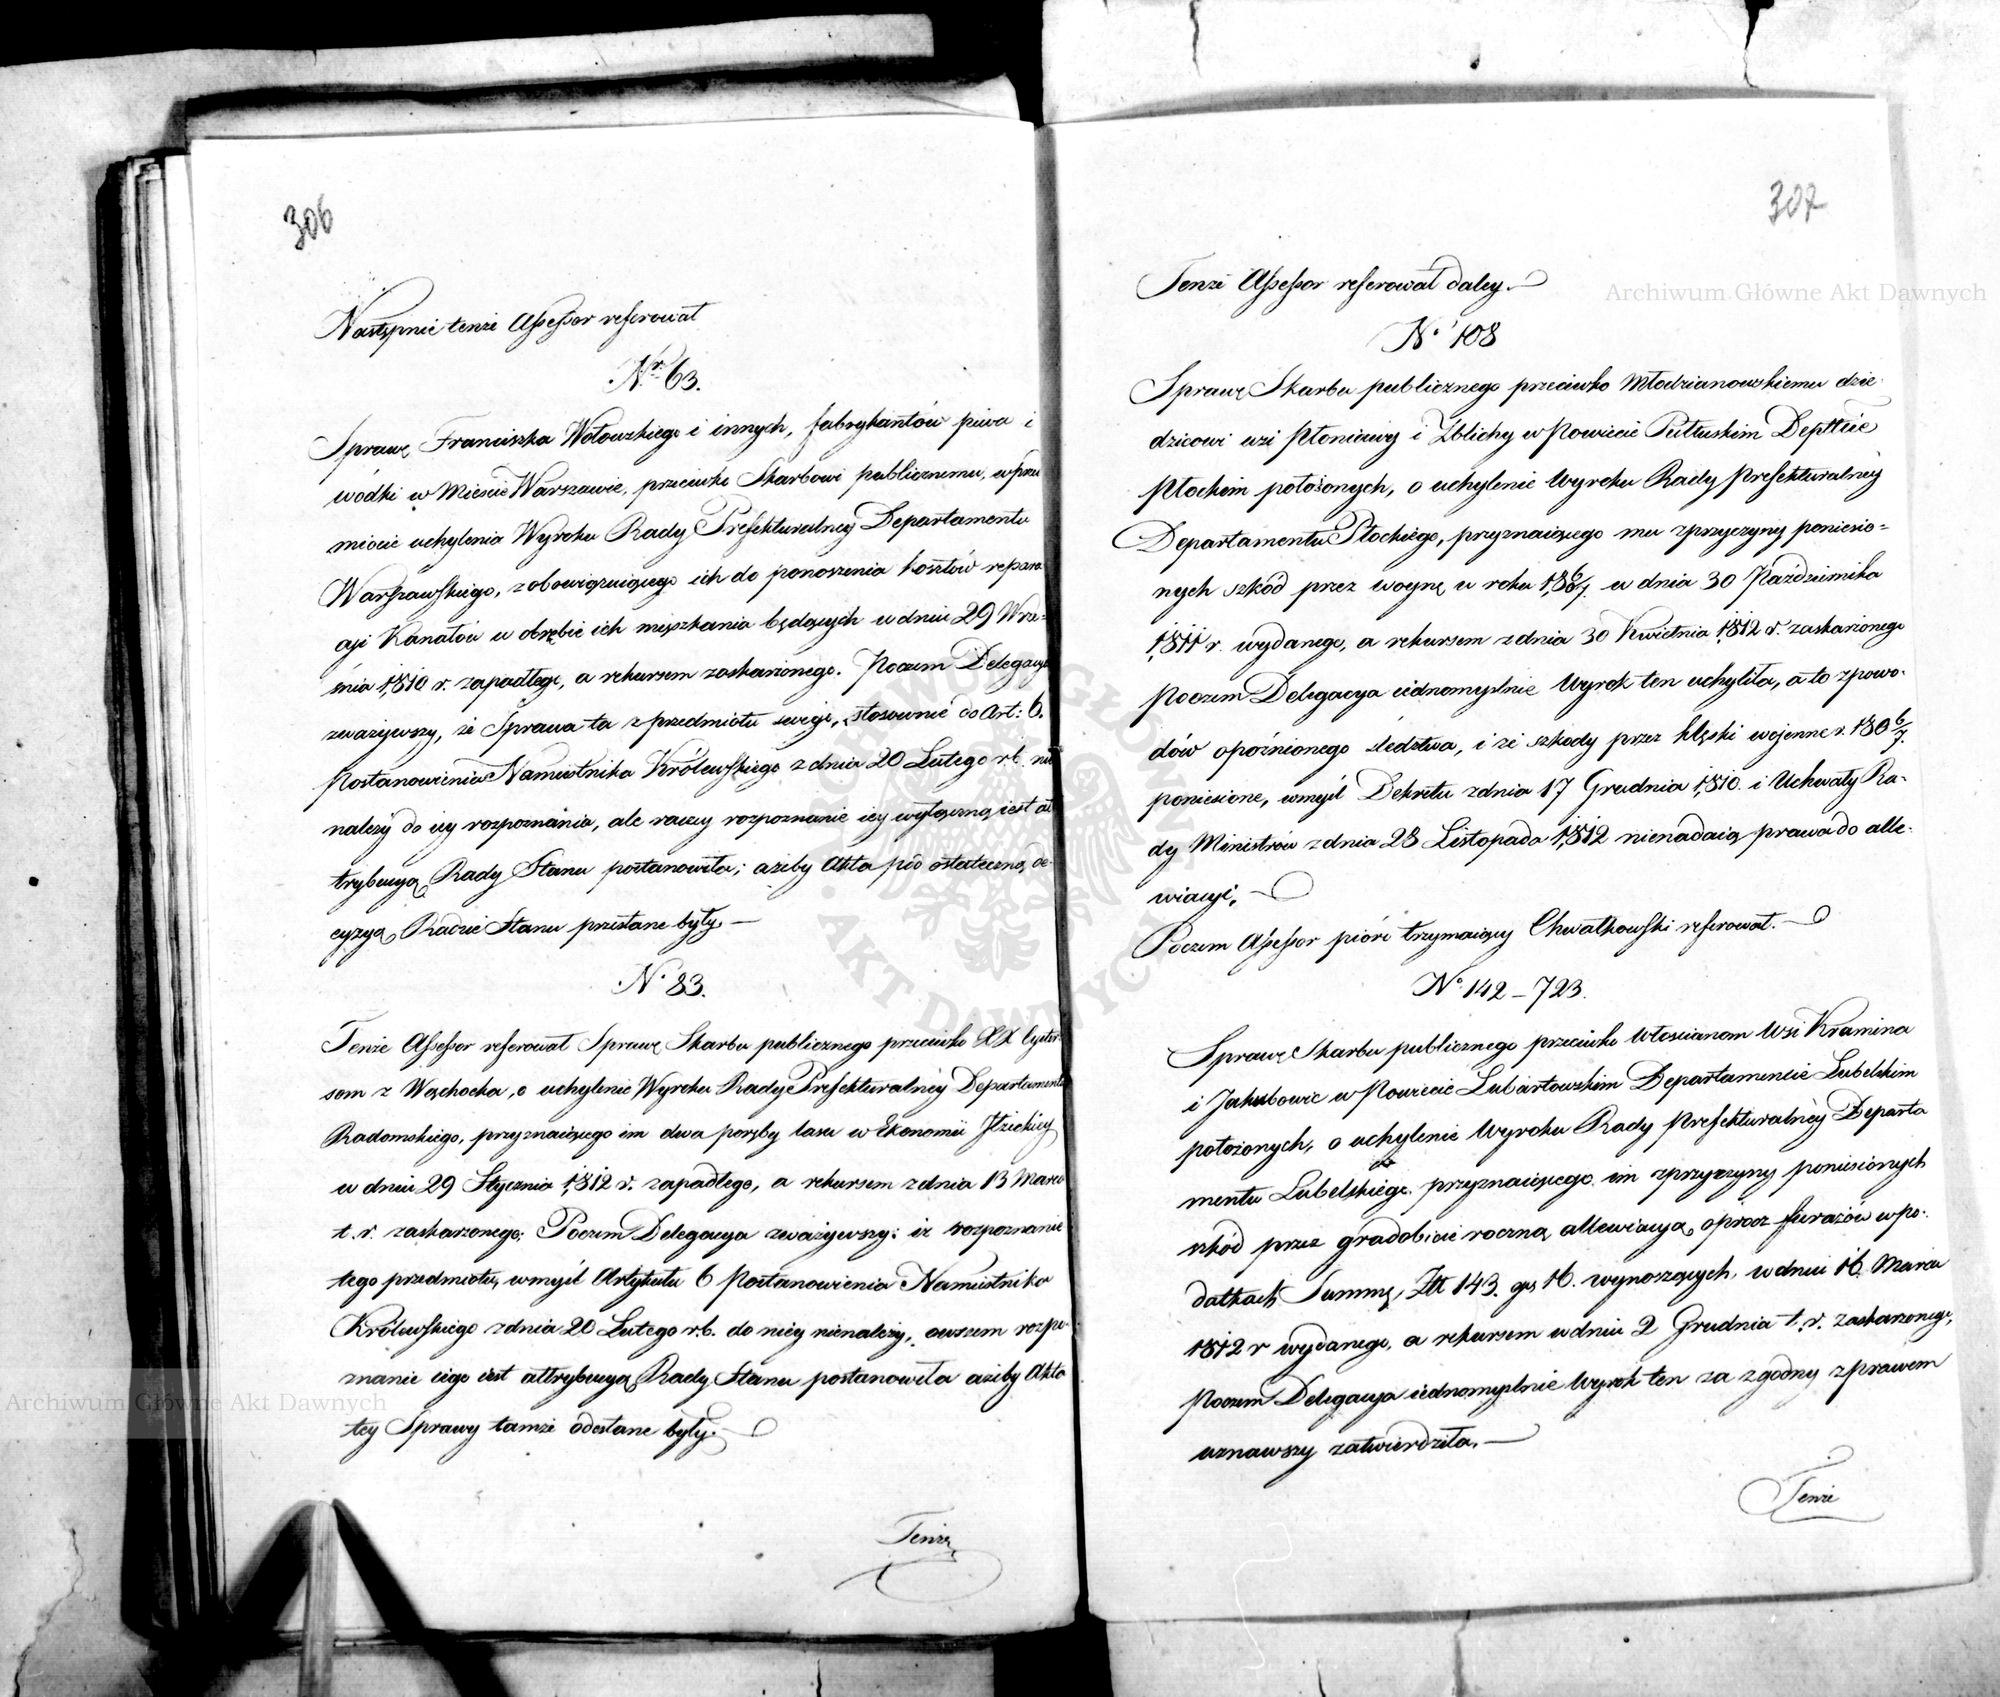 306
Następnie tenże Assessor referował
Nr. 63.
Sprawę Franciszka Wołowskiego i innych, fabrykantów piwa i
wódki w Mieście Warszawie, przeciwko Skarbowi publicznemu, w przed
miocie uchylenia Wyroku Rady Prefekturalney Departamentu
Warszawskiego, zobowiązuiącego ich do ponoszenia kosztów repara
cyi Kanałów w obrębie ich mięszkania będących w dniu 29 Wrze=
śnia 1810 r. zapadłego, a rekursem zaskarżonego. Poczem Delegacya
zważywszy, że Sprawa ta z przedmiotu swego, stosownie do Art: 6.
Postanowienia Namiestnika Królewskiego z dnia 20 Lutego r. b. nie
należy do iey rozpoznania, ale raczey rozpoznanie iey wyłączną iest at
trybucyą Rady Stanu postanowiła; ażeby Akta pod ostateczną de-
cyzyą Radzie Stanu przesłane były.—
N. 83.
Tenże Assessor referował Sprawę Skarbu publicznego przeciwko XX Cyster
som z Wąchocka, o uchylenie Wyroku Rady Prefekturalney Departamentu
Radomskiego, przyznaiącego im dwa poręby lasu w Ekonomii Iłżeckiey
w dniu 29 Stycznia 1812 r. zapadłego, a rekursem z dnia 13 Marca
t. r. zaskarżonego; Poczem Delegacya zważywszy: iż rozpoznanie
tego przedmiotu, w myśl Artykułu 6 Postanowienia Namiestnika
Królewskiego z dnia 20 Lutego r. b. do niey nienależy, owszem rozpo-
znanie iego iest attrybucyą Rady Stanu postanowiła ażeby Akta
tey Sprawy tamże odesłane były.—
Tenże
307
Tenże Assessor referował daley.—
N. 108
Sprawę Skarbu publicznego przeciwko Młodzianowskiemu dzie-
dzicowi wsi Płoniawy i Zblichy w Powiecie Pułtuskim Depttcie
Płockim położonych, o uchylenie Wyroku Rady Prefekturalney
Departamentu Płockiego, przyznaiącego mu z przyczyny poniesio=
nych szkód przez woynę w roku 1806/7. w dniu 30 Października
1811 r. wydanego, a rekursem z dnia 30 Kwietnia 1812 r. zaskarżonego
Poczem Delegacya iednomyślnie Wyrok ten uchyliła, a to z powo-
dów opoźnionego śledztwa, i że szkody przez klęski wojenne r. 1806/7.
poniesione, w myśl Dekretu z dnia 17 Grudnia 1810. i Uchwały Ra-
dy Ministrów z dnia 28 Listopada 1812 nienadaią prawa do alle-
wiacyi.—
Poczem Assessor pióro trzymaiący Chwalkowski referował.—
N. 142 – 723.
Sprawę Skarbu publicznego przeciwko Włościanom Wsi Kramina
i Jakubowic w Powiecie Lubartowskim Departamencie Lubelskim
położonych, o uchylenie Wyroku Rady Prefekturalney Departa
mentu Lubelskiego. przyznaiącego im z przyczyny poniesionych
szkód przez gradobicie roczną allewiacyą, oprócz furażów w po-
datkach Summę, Złt 143. gr. 16. wynoszących, w dniu 16. Marca
1812 r wydanego, a rekursem w dniu 2 Grudnia t. r. zaskarżonego,
Poczem Delegacya iednomyślnie Wyrok ten za zgodny z prawem
uznawszy zatwierdziła.—
Tenże
Archiwum Główne Akt Dawnych
Archiwum Główne Akt Dawnych